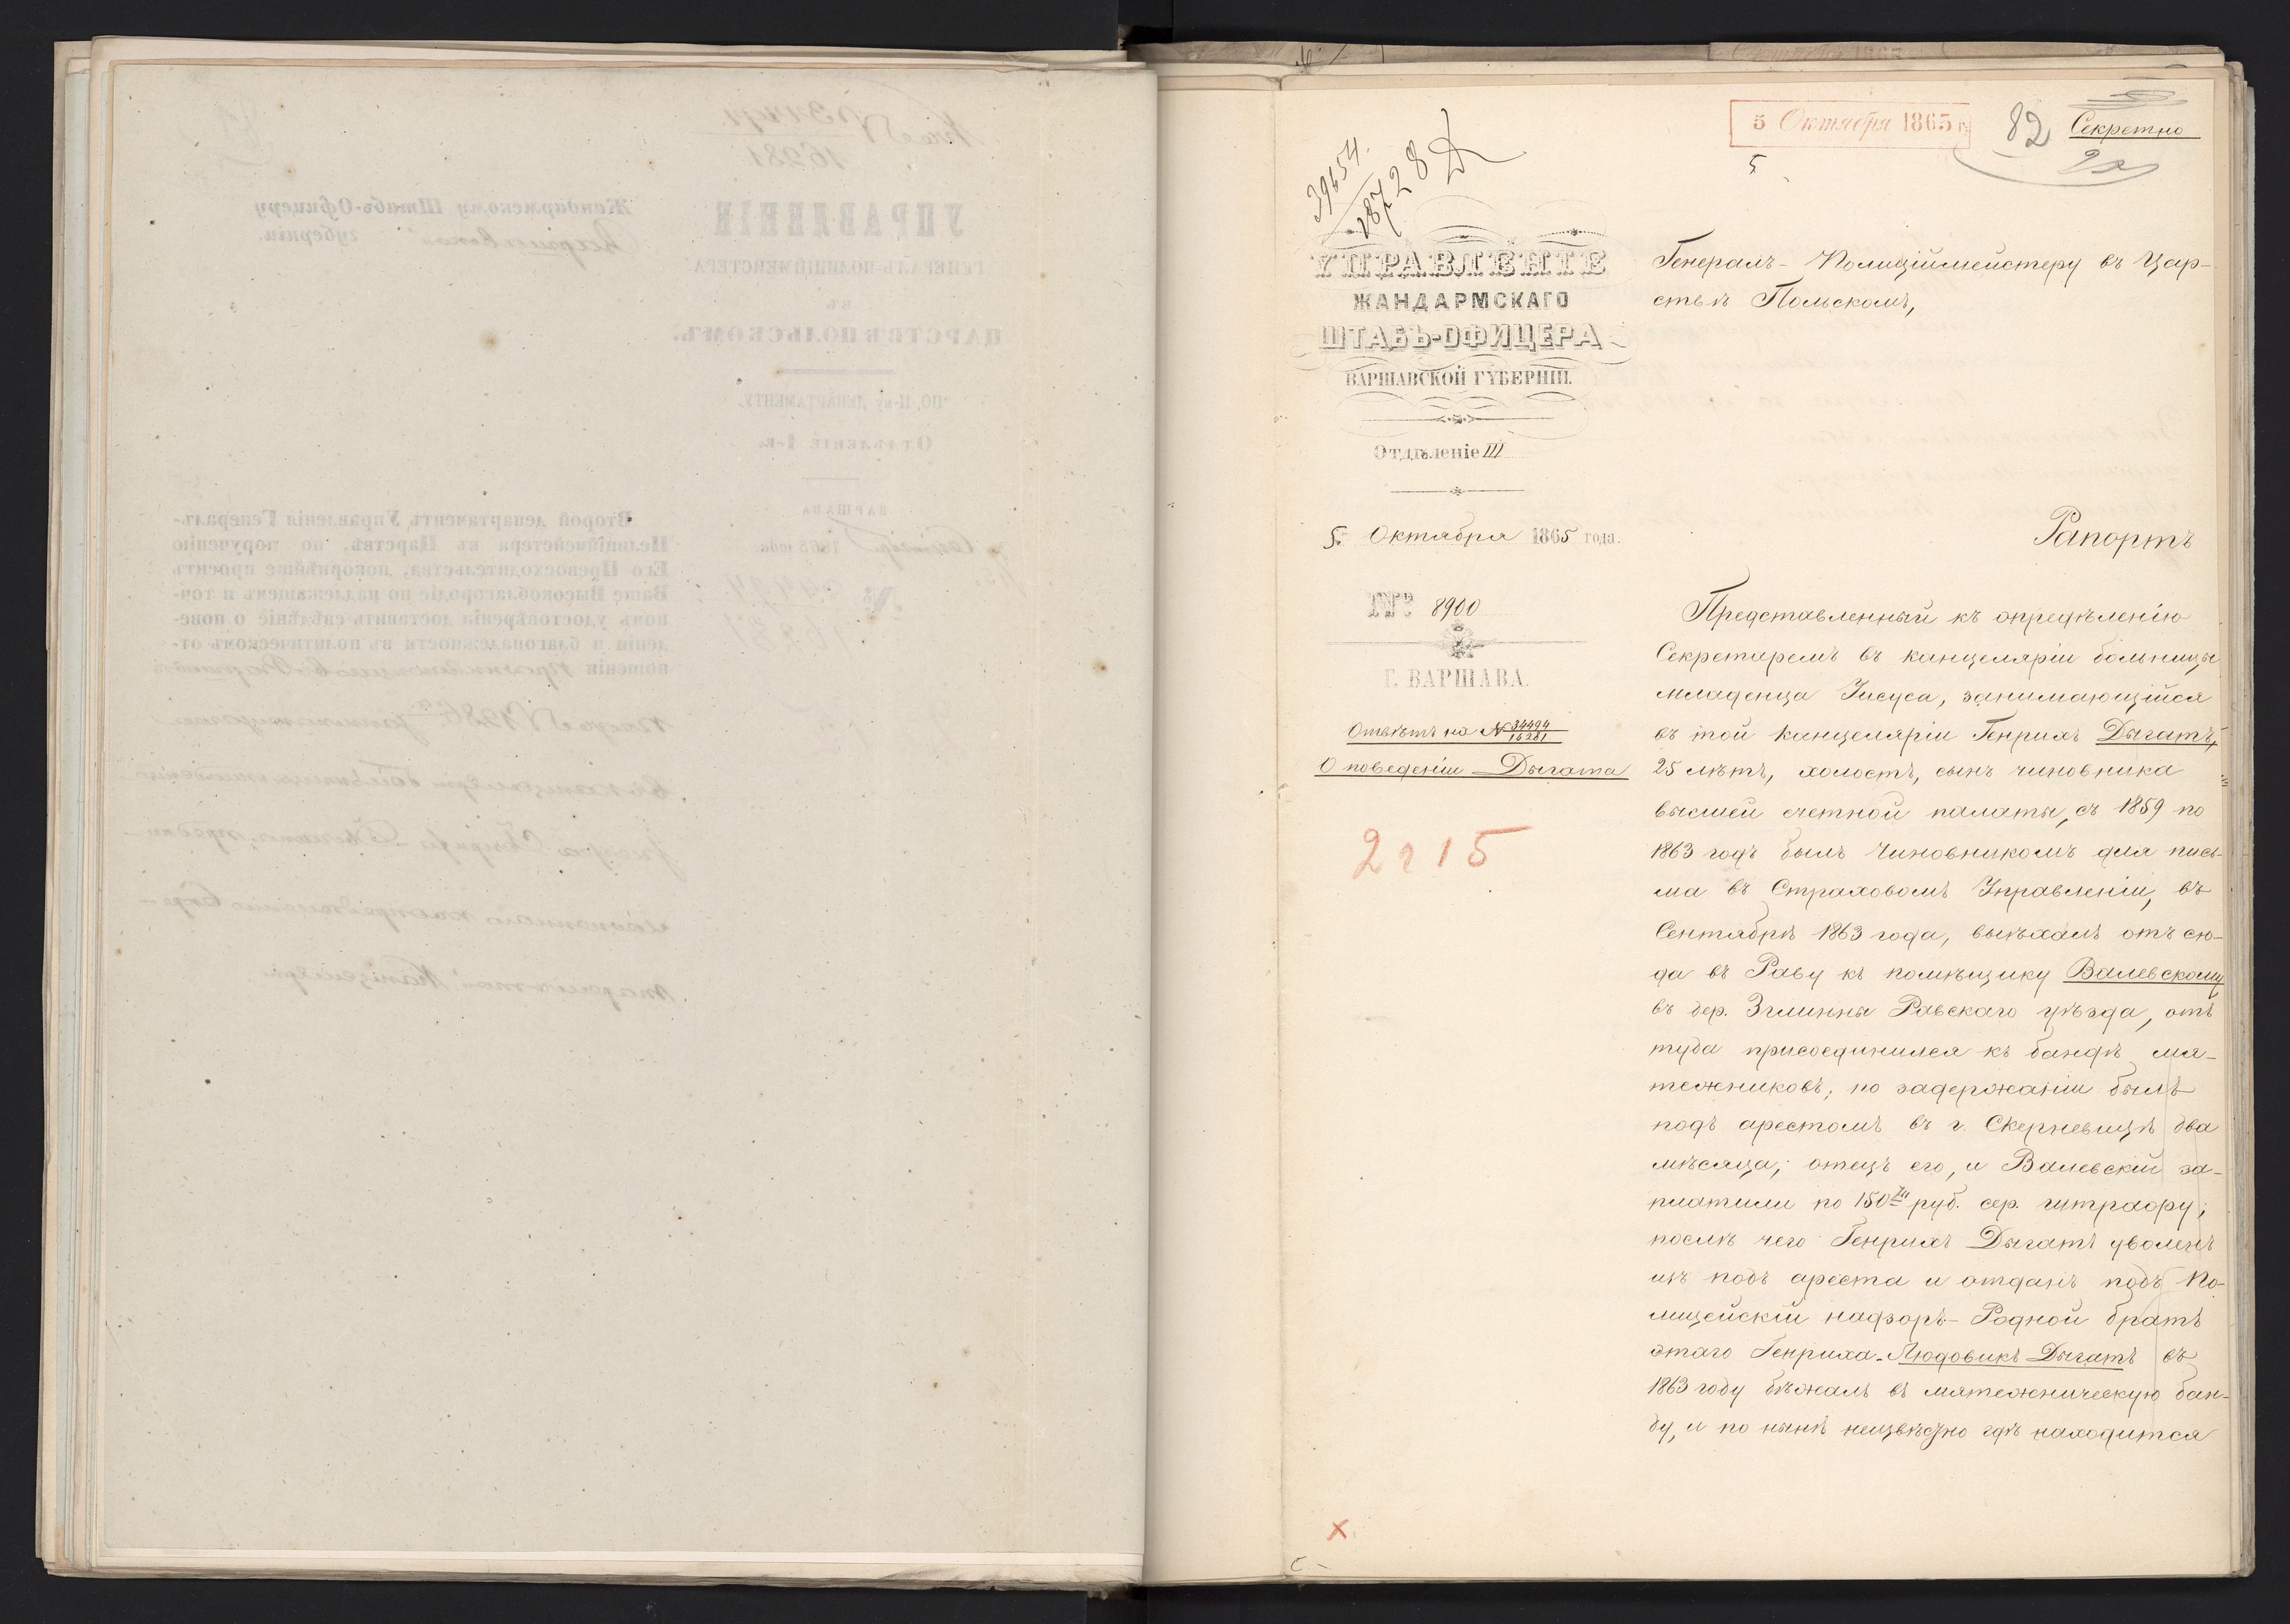 5 Октября 1865 г.
82
Секретно
5
39654.
18728
УПРАВЛЕНІЕ
ЖАНДАРМСКАГО
ШТАБЪ-ОФИЦЕРА
ВАРШАВСКОЙ ГУБЕРНІИ.
Отдѣленіе III
5 Октября 1865 года.
№ 8900
Г. ВАРШАВА.
Отвѣтъ на № 34494
16281
О поведеніи Дыгата
2215
Генералъ-Полиціймейстеру въ Цар-
ствѣ Польскомъ,
Рапортъ
Представленный къ опредѣленію
Секретаремъ въ канцеляріи больницы
младенца Іисуса, занимающійся
въ той канцеляріи Генрихъ Дыгатъ,
25 лѣтъ, холостъ, сынъ чиновника
высшей счетной палаты, съ 1859 по
1863 годъ былъ Чиновникомъ для пись-
ма въ Страховомъ Управленіи, въ
Сентябрѣ 1863 года, выѣхалъ отъ сю-
да въ Раву къ помѣщику Валевскому
въ дер. Зглинны Равскаго уѣзда, отъ
туда присоединился къ бандѣ мя-
тежниковъ; по задержаніи былъ
подъ арестомъ въ г. Скерневицѣ два
мѣсяца; отецъ его, и Валевскій за-
платили по 150 руб. сер. штрафу;
послѣ чего Генрихъ Дыгатъ уволенъ
изъ подъ ареста и отданъ подъ По-
лицейскій надзоръ - Родной братъ
этаго Генриха - Людовикъ Дыгатъ въ
1863 году бѣжалъ въ мятежническую бан-
ду, и по нынѣ неизвѣстно гдѣ находится